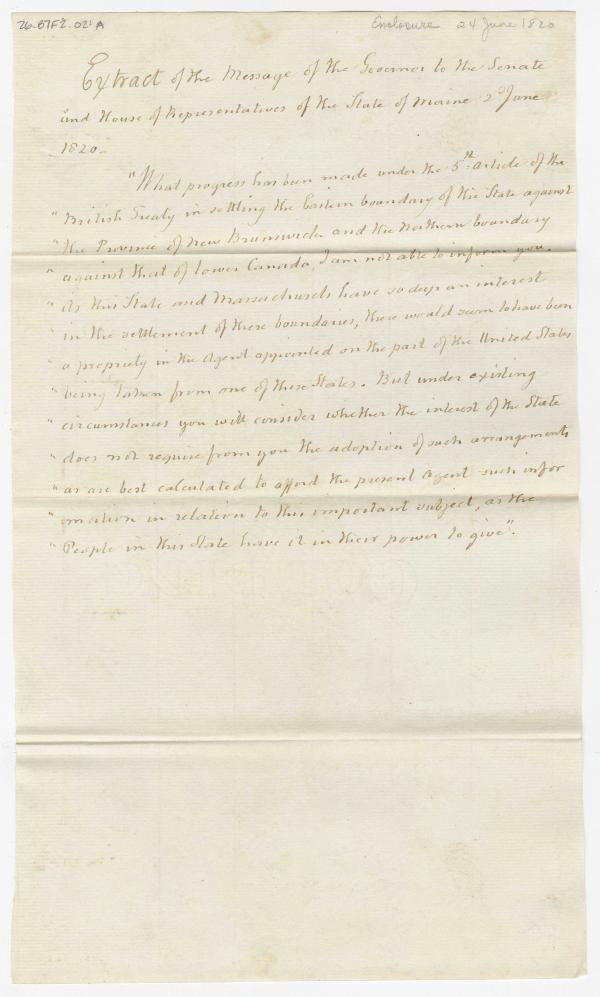 76-07F2-021A
Enclosure 24 June 1820
Extract of the Message of the Governor to the Senate
and House of Representatives of the State of Maine 2d June
1820.
"What progress has been made under the 5th article of the
" British Treaty in settling the Eastern boundary of the State against
" the Province of New Brunswick and the Northern boundary
" against that of lower Canada, I am not able to inform you.
" As this State and Massachusets have so deep an interest
" in the settlement of these boundaries, there would seem to have been
" a propriety in the Agent appointed on the part of the United States
" being taken from one of these States. But under existing
" circumstances you will consider whether the interest of the State
" does not require from you the adoption of such arrangements
" as are best calculated to afford the present Agent such infor
" mation in relation to this important subject, as the
" People in this State have it in their power to give".